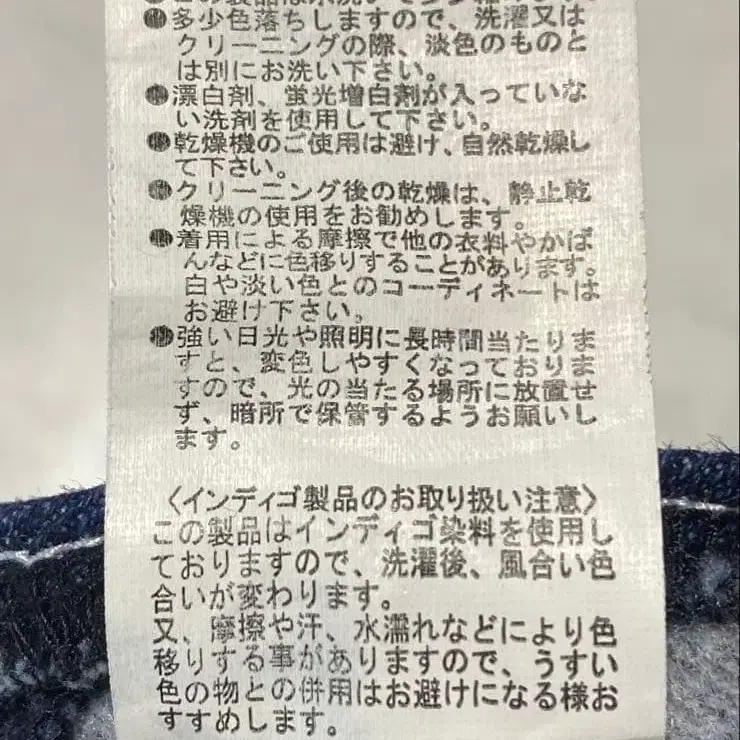 この製品は水洗い
●多少色落ちしますので、洗濯又は
クリーニングの際、淡色のものと
は別にお洗い下さい。
●漂白剤、蛍光増白剤が入っていな
い洗剤を使用して下さい。
●乾燥機のご使用は避け、自然乾燥し
て下さい。
●クリーニング後の乾燥は、静止乾
燥機の使用をお勧めします。
●着用による摩擦で他の衣料やかば
んなどに色移りすることがあります。
白や淡い色とのコーディネートは
お避け下さい。
●強い日光や照明に長時間当たりま
すと、変色しやすくなっておりま
すので、光の当たる場所に放置せ
ず、暗所で保管するようお願いし
ます。
〈インディゴ製品のお取り扱い注意〉
この製品はインディゴ染料を使用し
ておりますので、洗濯後、風合い色
合いが変わります。
又、摩擦や汗、水濡れなどにより色
移りする事がありますので、うすい
色の物との併用はお避けになる様お
すすめします。